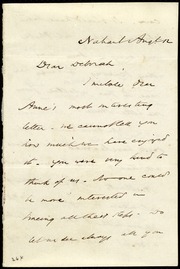 Nahant Aug 5 12
Dear Deborah,
I enclose dear
Anne's most interesting
letter - we cannot tell you
how much we have enjoyed
it - you were very kind to
think of us. No one could
be more interested in
tracing all their steps. Do
let us see always all you